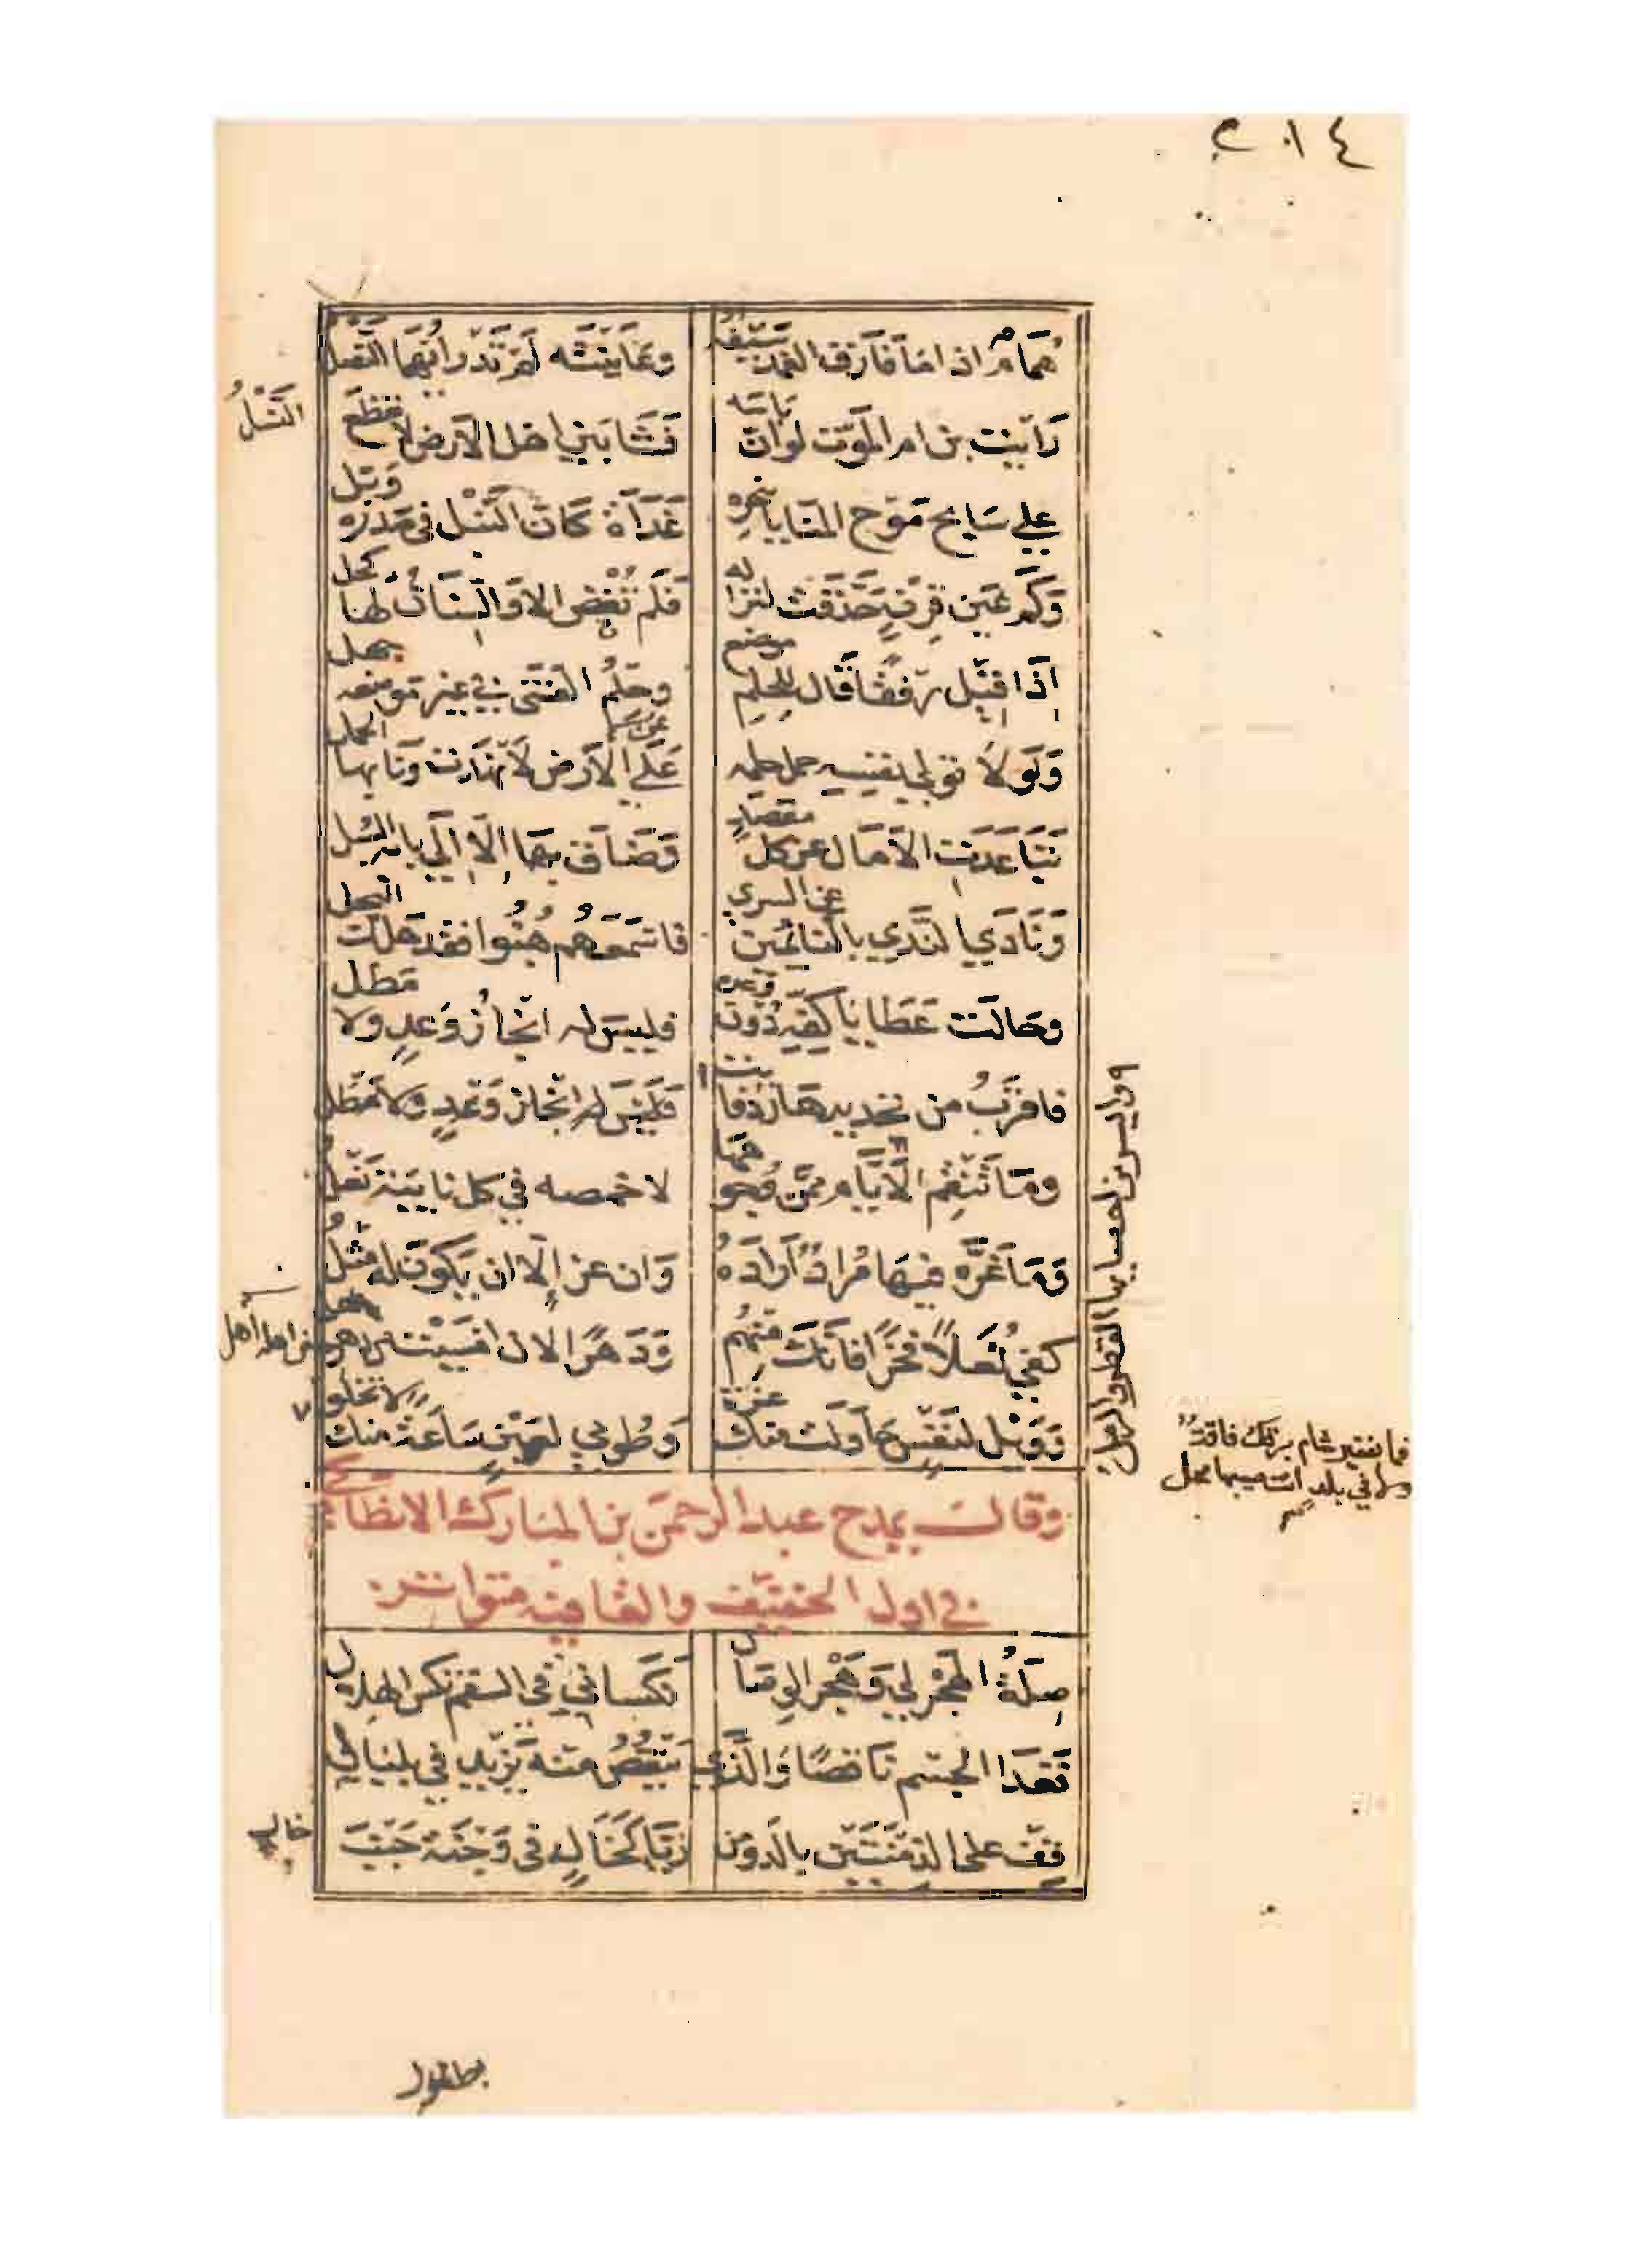 ٢٠١٤
هُمَامٌ اذا ما فارَق الغمدَ سَيْفُهُ وعَايَنْتَه لَم تَدْرِ أيّهُما النَّصْلُ
رَأيْت بن ام المَوْت لَو ان بَاسَه فَشَا بَيْن اهْل الأرْض لانقَطَعَ
النَّسْلُ
عَلي سَابح مَوْج المنَايا بنَحْرِه غَدَاةَ كَانَ النَّبْل في صَدْرِه وَبْل
وَكَم عَيْن قِرْنٍ حَدَّقت لنِزَالِه فَلَم تُغْضِ الا وَالسِّنَانُ لهَا كحل
إذَا قِيْلَ رِفْقًا قَال للحِلمِ موضع وحِلْمُ الفَتَى في غيرِ مَوضِعه جهل
وَلَوْلا تولي نفسِه حمل حلمه عَن عَلَى الأرْض لانْهَارَت وَنَا بها الحمل
تَبَاعَدَت الآمَال عن كل مقصد وَضَاق بهَا إلّا إلَى بابِه السُّبل
وَنَادَي النَّدَي بالنائمين عن السري فاسْمَعَهُم هُبُّوا فقد هَلَك البخل
وحَالَت عَطَايا كَفِّه دُوْن وَعده فليس له انْجَازُ وَعْدٍ ولا مَطل
فاقرَبُ من تحديدهَا رَدّ فائت
فَلَيْسَ له انْجَاز وَعْدٍ وَلا مَطْل
وايسر من احصايها القطر والرمل
ومَا تَنْقِمُ الأيَّام ممّن وُجوهها لاخمصه في كل نايبة نَعْل
وَمَا عَزَّه فيْهَا مُرَادٌ أرَادَهُ وَان عز إلّا ان يَكُوْن له مِثْلُ
كَفَى ثُعَلًا فَخْرًا بأنَّك مِنْهُم وَدَهْرًا لان امْسَيْت من اهله اهل
من اهله أهل
وَوَيْل لنَفْس حَاوَلَت منك غرّة وَطُوبي لعَيْنٍ سَاعَةً منك لا تخلو
فما بفقير شام برقك فاقةٌ
ولا في بلاد انت صيبها محل
وقال يمدح عبد الرحمن بن المبارك الانطاكي
في اول الخفيف والقافيه متواتر
صِلَةُ الهَجْر لي وَهَجْر الوِصَال نَكَسَاني في السقم نكس الهلال
فَغَدَا الجسْم نَاقصًا وَالَّذي يَنْقُصُ منه يَزيد في بلبَالي
قِف على الدِّمْنَتَيْن بالدَّو من رَيَّا كَخَالٍ في وَجْنَة جَنْب
خال
بطلول